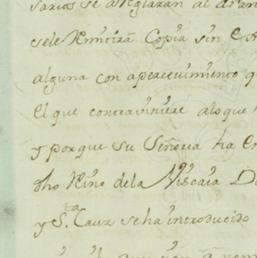 sarios se areglaran al aran
sele Remitira Copia sin e
alguna con apercevimiento q
el que contraviniere aloque
y porque su Señoria ha en
dho Reino dela Viscaia D
y Sta Cruz seha introducido